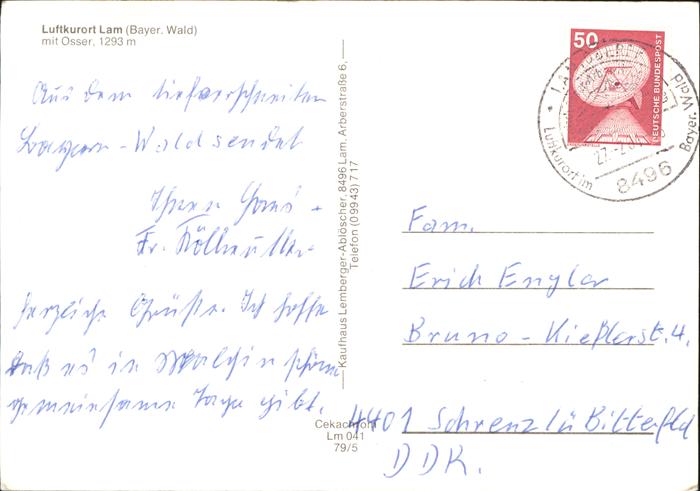 Luftkurort Lam (Bayer. Wald)
mit Osser, 1293 m
Aus dem tiefverschneiten
Bayern-Wald sendet
Ihnen
Fr.
herzliche Grüße. Ich hoffe
daß es in Malchin schöne
gemeinsame Tage gibt.
Kaufhaus Lemberger-Ablöscher, 8496 Lam, Arberstraße 6,
Telefon (09943) 717
Cekach
Lm 041
79/5
50
DEUTSCHE BUNDESPOST
LAM
27.-2.
8496
Luftkurort im
Bayer. Wald
Fam.
Erich Engler
Bruno-Kießlerst. 4.
4401 Schrenz lü Bitterfeld
DDR.